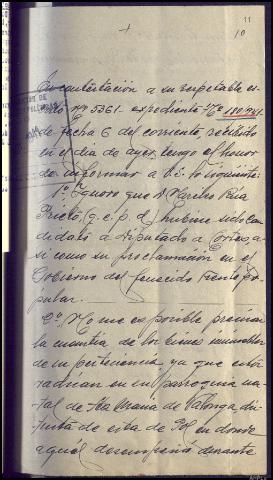 11
10
+
En contestación a su respetable es-
crito nº 5361 - expediente - Nº 180/941.
de fecha 6 del corriente, recibido
en el dia de ayer, tengo el honor
de informar a V.S. lo siguiente:
1º. Ignoro que D Marino Rúa
Prieto, (q. e. p. d.) hubiese sido can-
didato a Diputado a Cortes, a-
sí como su proclamación en el
Gobierno del fenecido frente po-
pular.
2º. No me es posible precisar
la cuantia de los bienes inmuebles
de su pertenencia ya que estos
radican en su parroquia na-
tal de Sta Maria de Valonga, dis-
tinta de esta de Pol en donde
aquél desempeñó durante